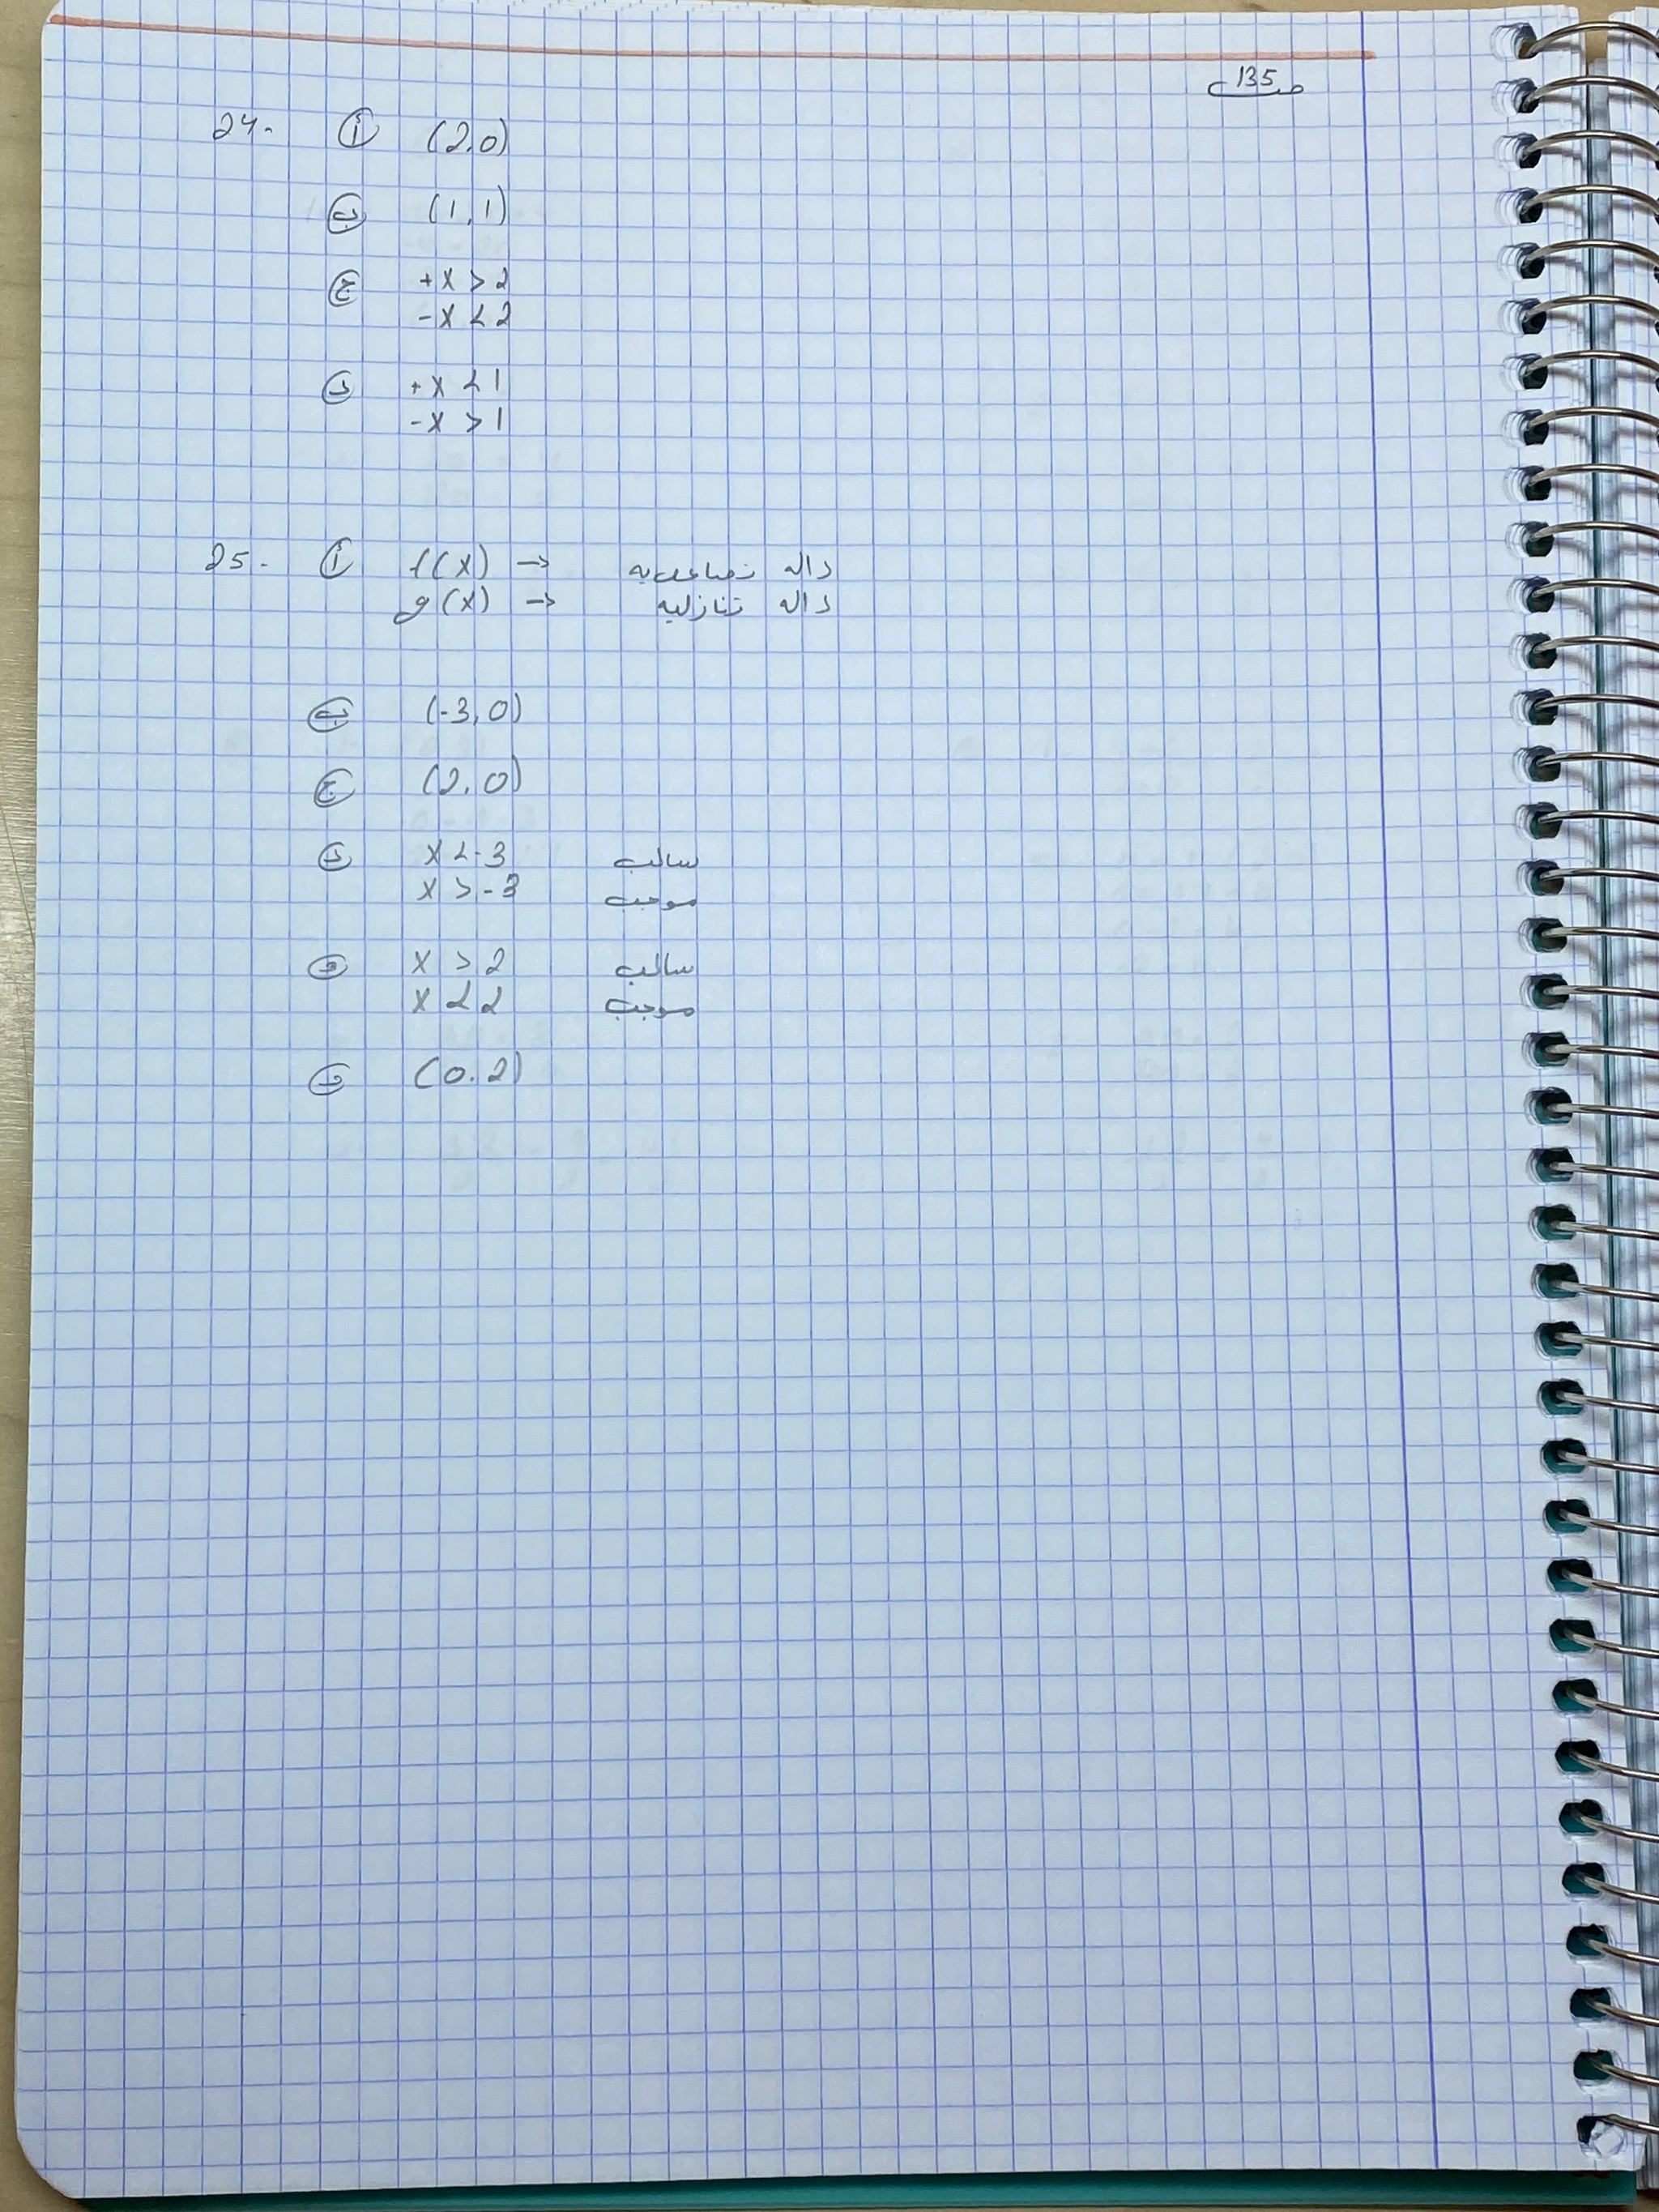 صـ 135
24. أ (2,0)
ب (1,1)
ج +x > 2
-x < 2
د +x < 1
-x > 1
25. أ f(x) → داله تصاعديه
g(x) → داله تنازليه
ب (-3,0)
ج (2,0)
د x < -3 سالب
x > -3 موجب
هـ x > 2 سالب
x < 2 موجب
و (0.2)